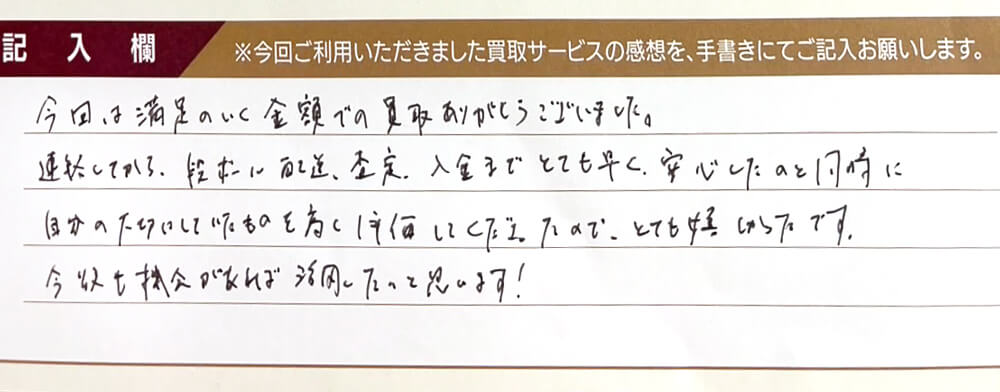 記入欄
※今回ご利用いただきました買取サービスの感想を、手書きにてご記入お願いします。
今回は満足のいく金額での買取ありがとうございました。
連絡してから、段ボール配送、査定、入金までとても早く、安心したのと同時に
自分の大切にしていたものを高く評価してくださったので、とても嬉しかったです。
今後も機会があれば活用したいと思います!